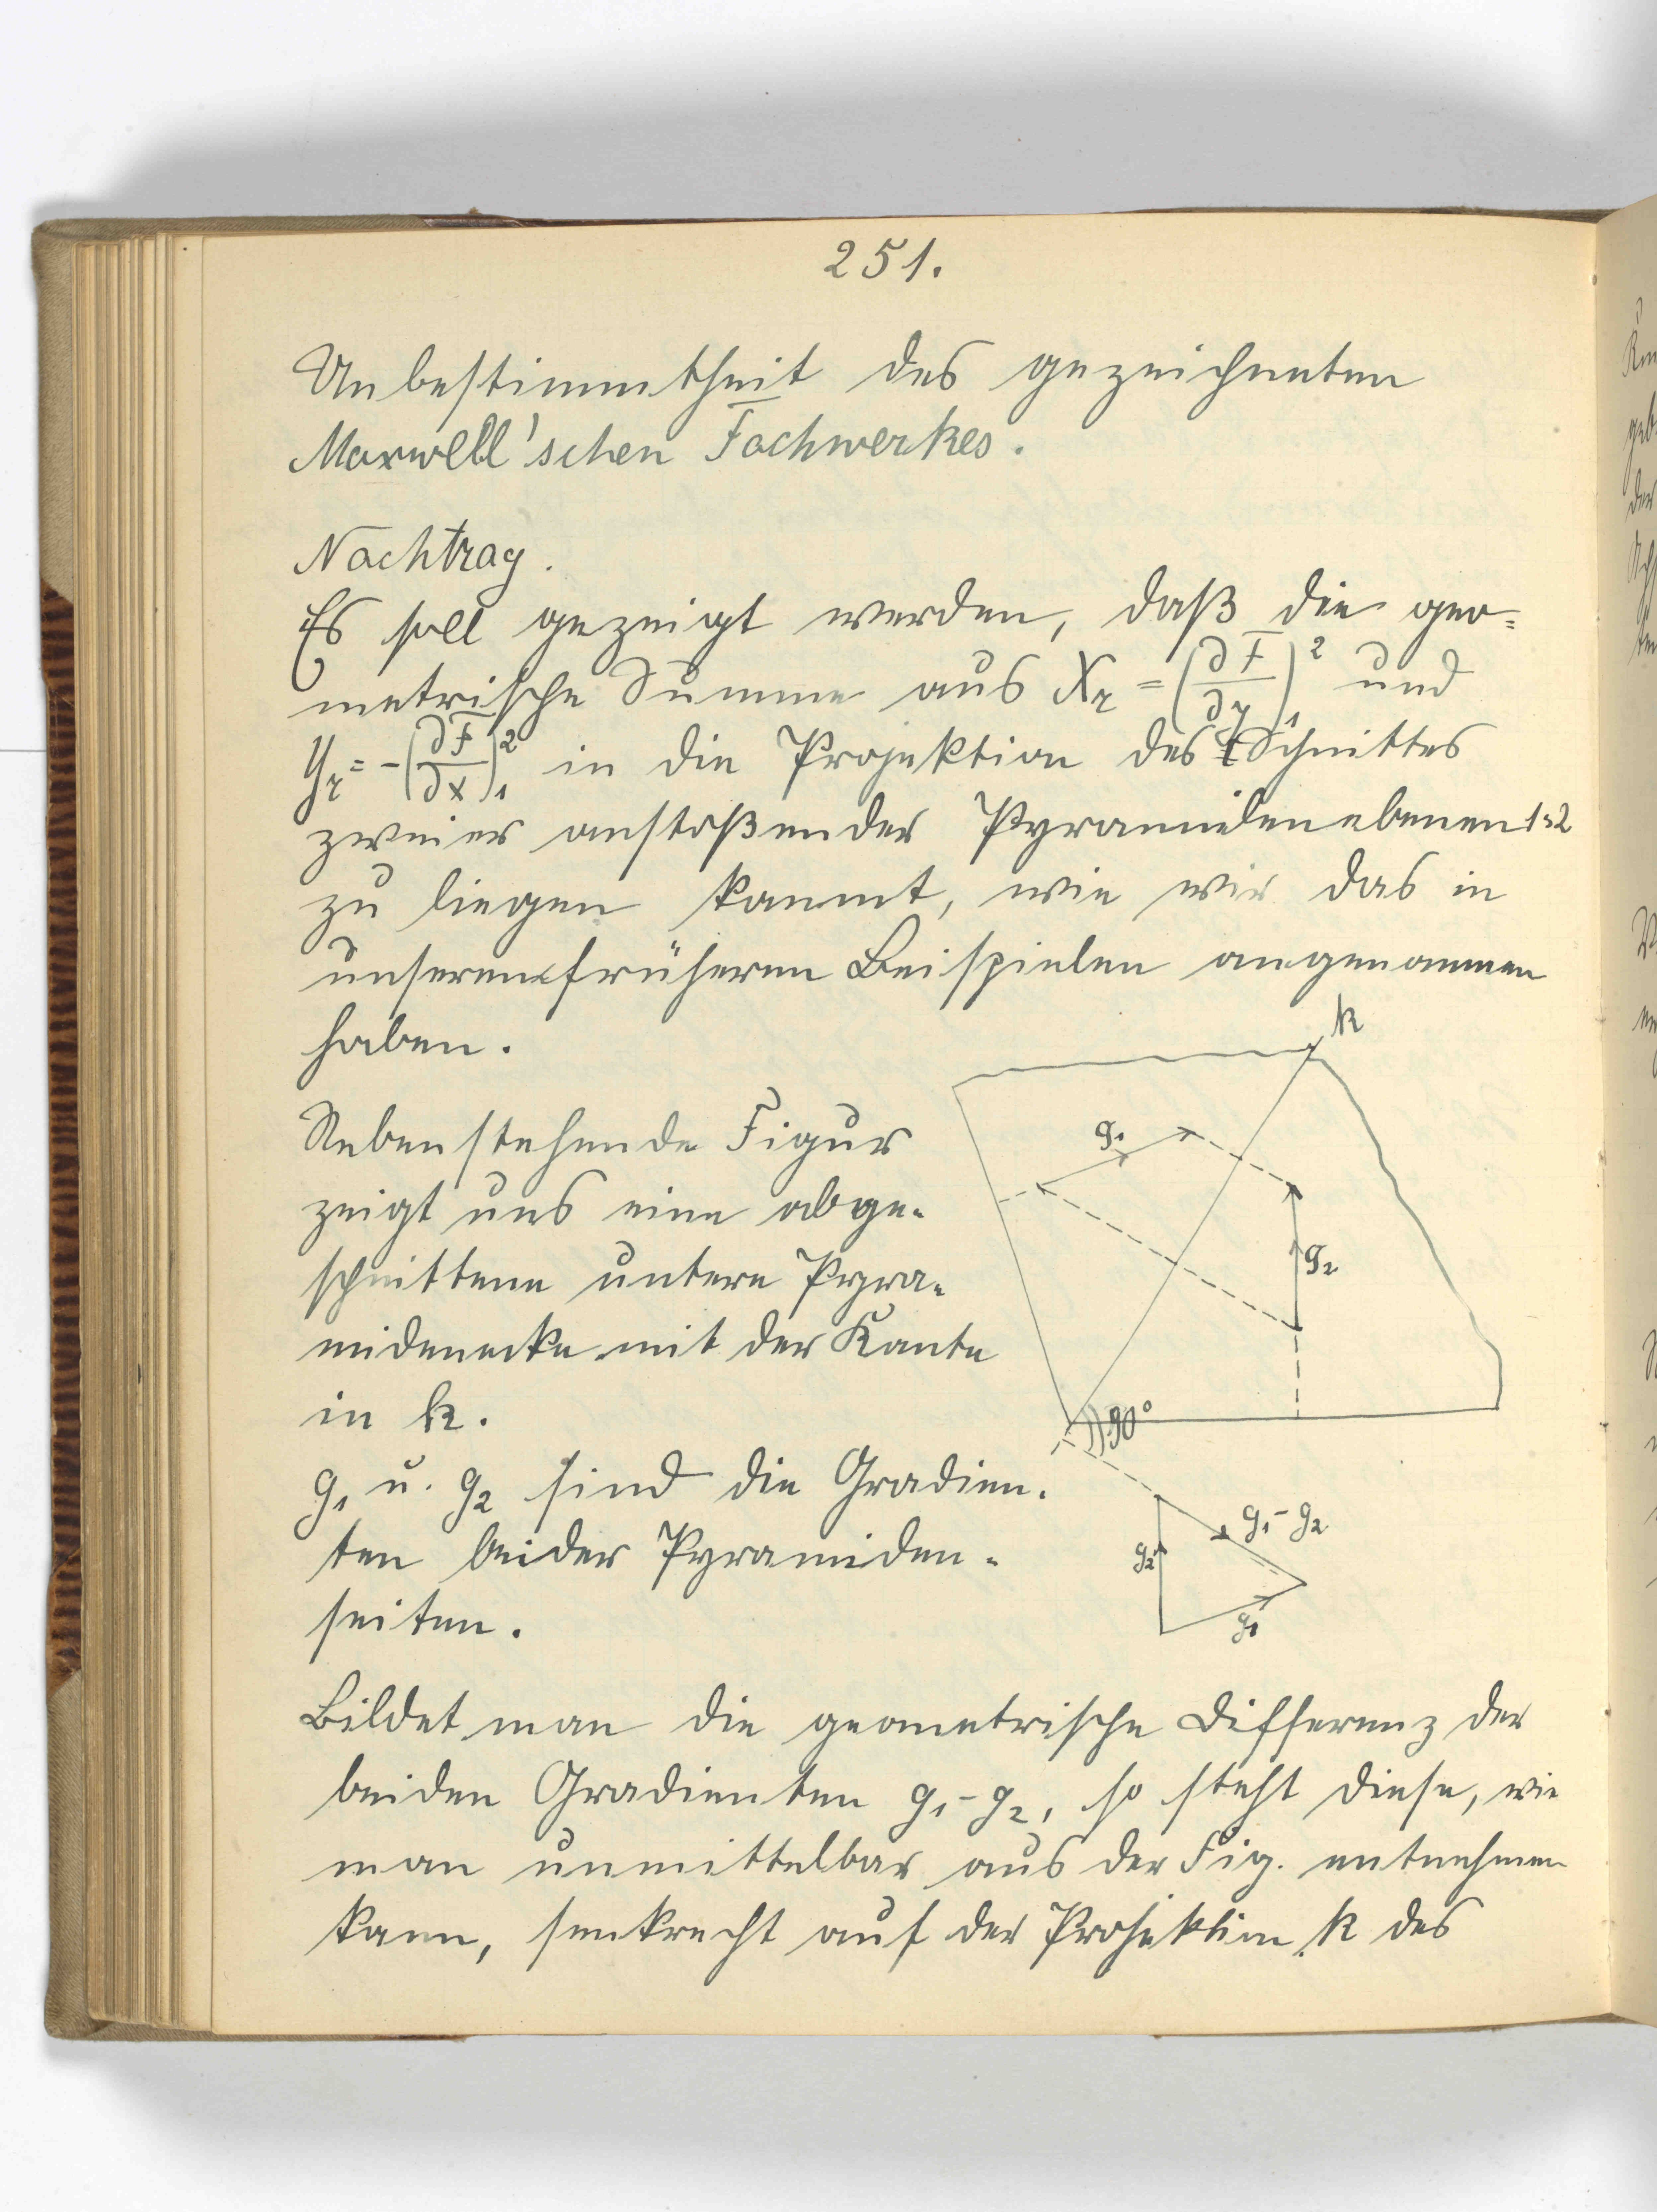 251.
Unbestimmtheit des gezeichneten
Maxwell'schen Fachwerkes.
Nachtrag.
Es soll gezeigt werden, daß die geo=
metrische Summe aus X_r = (∂F/∂y)₁² und
Y_r = -(∂F/∂x)₁² in die Projektion des Schnittes
zweier anstoßender Pyramidenebenen 1=2
zu liegen kommt, wie wir das in
unseren früheren Beispielen angenommen
haben.
k
g₁
Nebenstehende Figur
zeigt uns eine abge-
g₂
schnittene untere Pyra-
midenecke mit der Kante
in k.
90°
g₁ u. g₂ sind die Gradien-
g₁-g₂
ten beider Pyramiden-
g₂
seiten.
g₁
Bildet man die geometrische Differenz der
beiden Gradienten g₁-g₂, so steht diese, wie
man unmittelbar aus der Fig. entnehmen
kann, senkrecht auf der Projektion k des